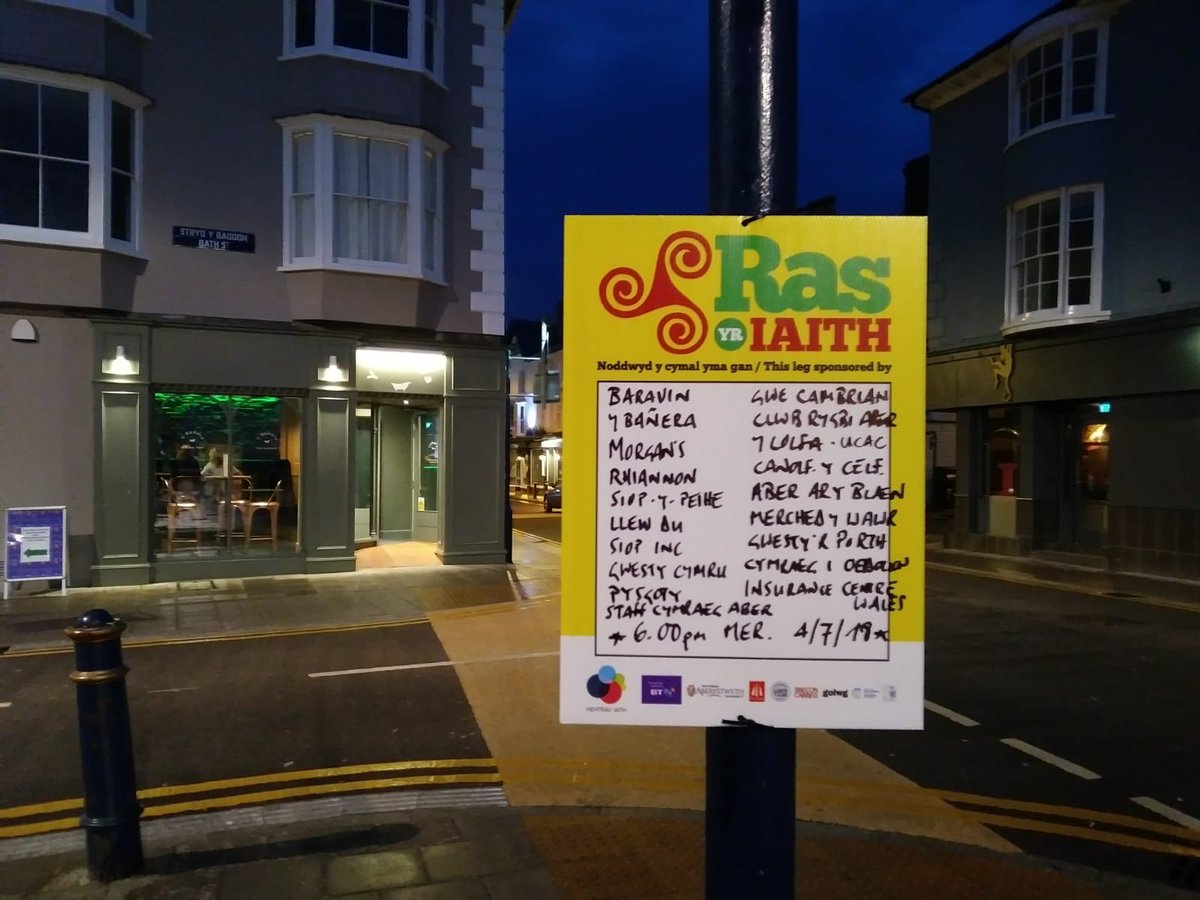 STRYD Y BADDON
BATH ST
Ras
YR IAITH
Noddwyd y cymal yma gan / This leg sponsored by
BARAVIN
Y BAÑERA
MORGANS
RHIANNON
SIOP-Y-PETHE
LLEW DU
SIOP INC
GWESTY CYMRU
PYSGOTY
STAFF CYMRAEG ABER
GWE CAMBRIAN
CLWB RYGBI ABER
Y LOLFA - UCAC
CANOLF. Y CELF.
ABER AR Y BLAEN
MERCHED Y WAWR
GWESTY'R PORTH
CYMRAEG I OEDOLION
INSURANCE CENTRE
WALES
* 6.00pm MER. 4/7/18 *
BT
ABERYSTWYTH
golwg